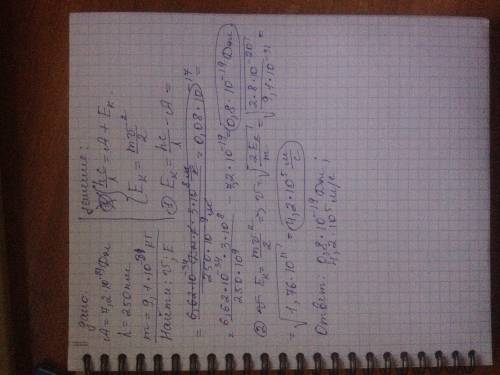 Дано:
A = 7,2·10⁻¹⁹ Дж
λ = 250 нм
m = 9,1·10⁻³¹ кг
Найти: v; E
Решение:
hc/λ = A + Eк
Eк = mv²/2
① Eк = hc/λ - A =
= 6,62·10⁻³⁴ Дж·с · 3·10⁸ м/с / 250·10⁻⁹ м = 0,08·10¹⁷ =
= 6,62·10⁻³⁴ · 3·10⁸ / 250·10⁹ - 7,2·10⁻¹⁹ = 0,8·10⁻¹⁹ Дж
② Eк = mv²/2 => v = √(2Eк/m) = √(2·8·10⁻²⁰ / 9,1·10⁻³¹) =
= √(1,76·10¹¹) = 4,2·10⁵ м/с
Ответ: 0,8·10⁻¹⁹ Дж;
4,2·10⁵ м/с